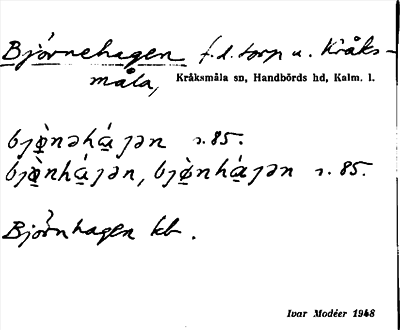 Björnehagen f.d. torp u. Kråks-
måla, Kråksmåla sn, Handbörds hd, Kalm. l.
bjø̀̀nəhá jən s. 85.
bjø̀nhájən, bjø̀nhájən s. 85.
Björnhagen kb.
Ivar Modéer 1948